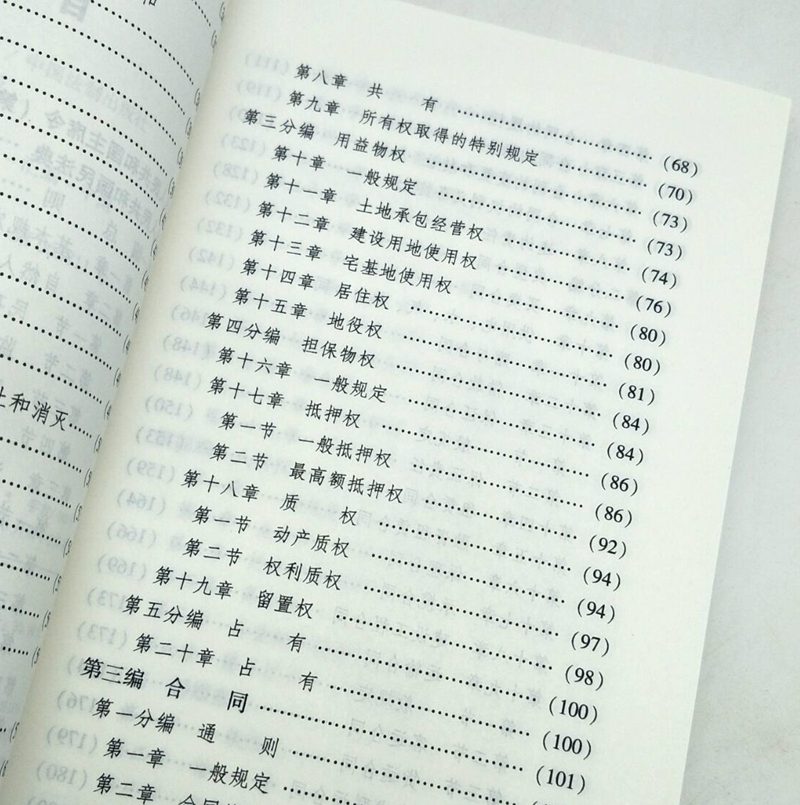 和
止和消灭
第八章　共　有 (68)
第九章　所有权取得的特别规定 (70)
第三分编　用益物权 (73)
第十章　一般规定 (73)
第十一章　土地承包经营权 (74)
第十二章　建设用地使用权 (76)
第十三章　宅基地使用权 (80)
第十四章　居住权 (80)
第十五章　地役权 (81)
第四分编　担保物权 (84)
第十六章　一般规定 (84)
第十七章　抵押权 (86)
第一节　一般抵押权 (86)
第二节　最高额抵押权 (92)
第十八章　质　权 (94)
第一节　动产质权 (94)
第二节　权利质权 (97)
第十九章　留置权 (98)
第五分编　占　有 (100)
第二十章　占　有 (100)
第三编　合　同 (101)
第一分编　通　则
第一章　一般规定
第二章　合同